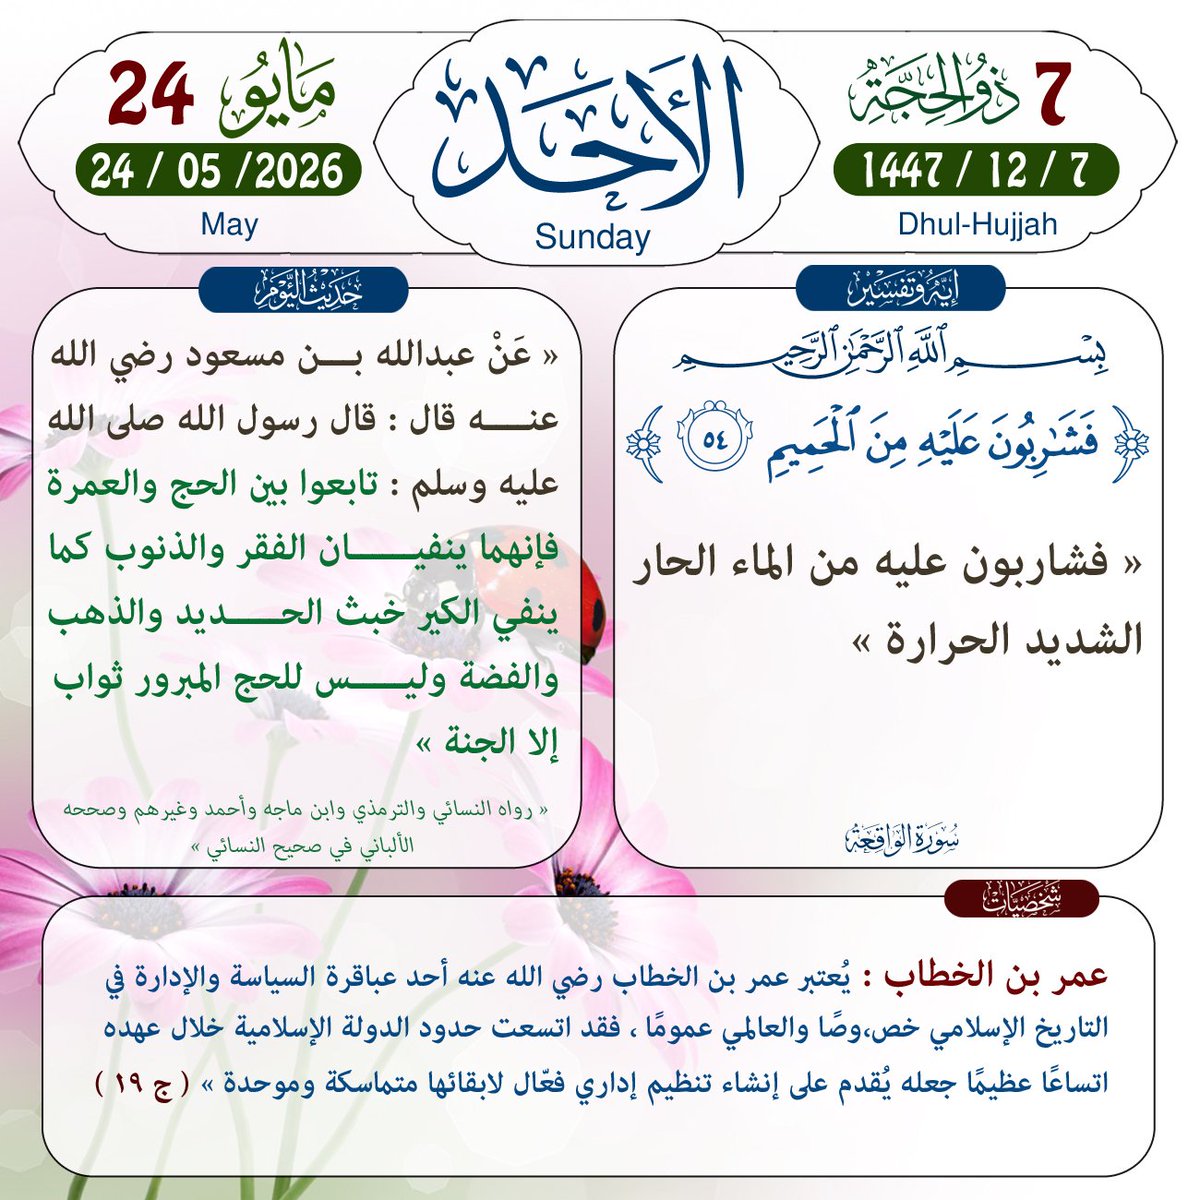 7 ذُو الحِجَّة
1447 / 12 / 7
Dhul-Hujjah
الأَحَد
Sunday
24 مَايُو
24 / 05 /2026
May
إيَه وتَفسْير
بِسْمِ ٱللَّهِ ٱلرَّحْمَٰنِ ٱلرَّحِيمِ
﴿ فَشَٰرِبُونَ عَلَيْهِ مِنَ ٱلْحَمِيمِ ٥٤ ﴾
« فشاربون عليه من الماء الحار
الشديد الحرارة »
سُورَة الوَاقِعَة
حَدِيثُ اليَّوْم
« عَنْ عبدالله بــن مسعود رضي الله
عنـــه قال : قال رسول الله صلى الله
عليه وسلم : تابعوا بين الحج والعمرة
فإنهما ينفيــــان الفقر والذنوب كما
ينفي الكير خبث الحـــديد والذهب
والفضة وليـــس للحج المبرور ثواب
إلا الجنة »
« رواه النسائي والترمذي وابن ماجه وأحمد وغيرهم وصححه
الألباني في صحيح النسائي »
شَخصِيَّات
عمر بن الخطاب : يُعتبر عمر بن الخطاب رضي الله عنه أحد عباقرة السياسة والإدارة في
التاريخ الإسلامي خص،وصًا والعالمي عمومًا ، فقد اتسعت حدود الدولة الإسلامية خلال عهده
اتساعًا عظيمًا جعله يُقدم على إنشاء تنظيم إداري فعّال لابقائها متماسكة وموحدة » ( ج ١٩ )